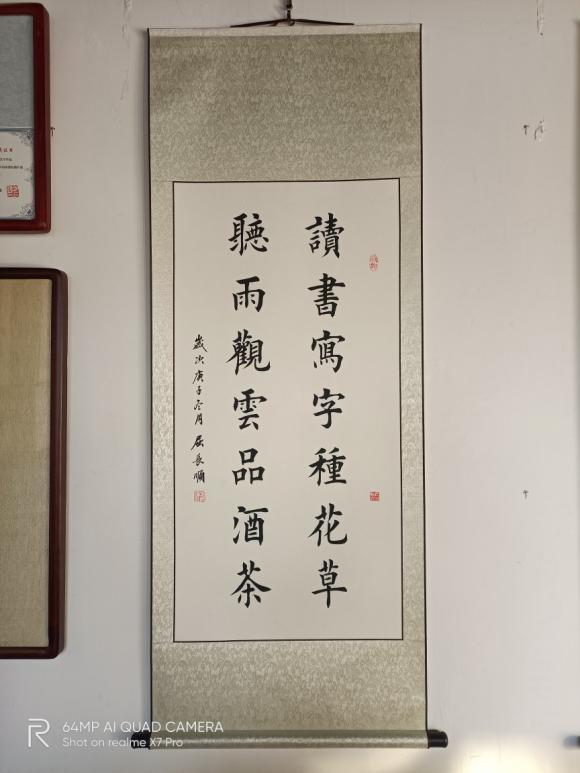 讀書寫字種花草
聽雨觀雲品酒茶
歲次庚子冬月 屈長順
64MP AI QUAD CAMERA
Shot on realme X7 Pro